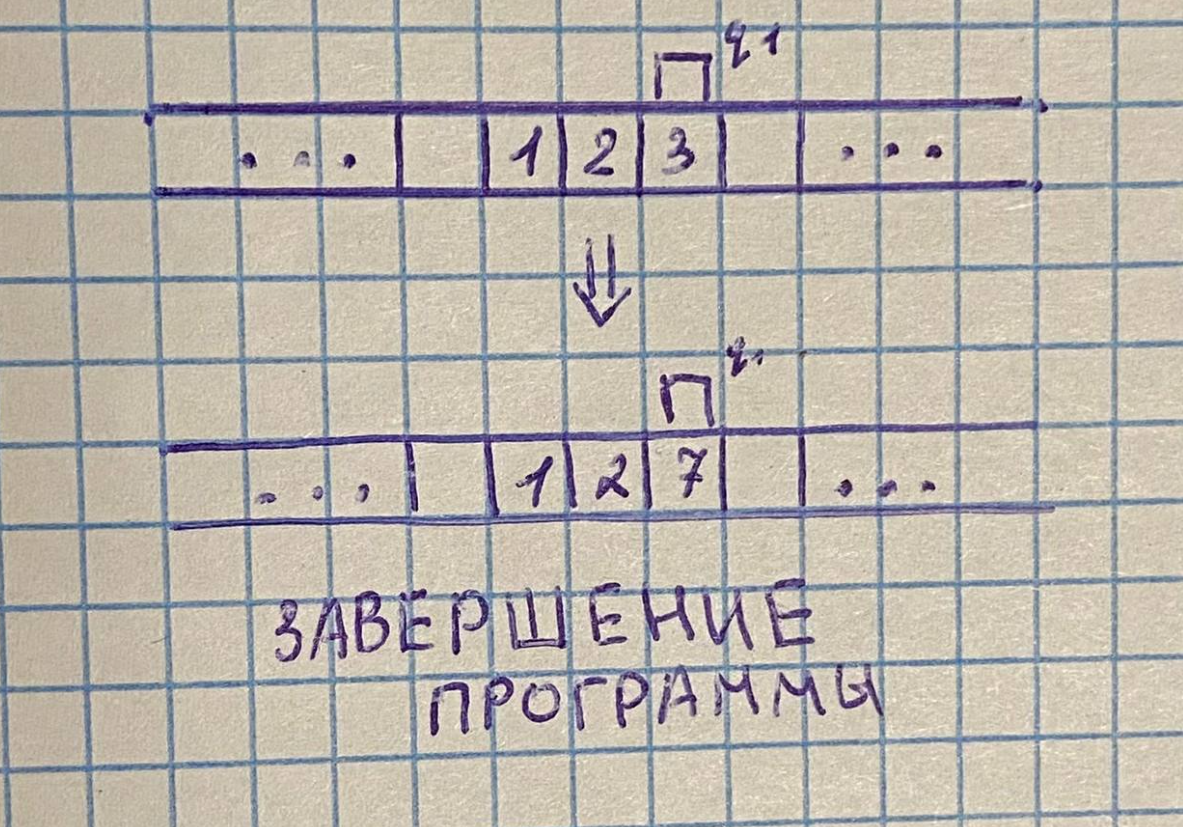 q1
... 1 2 3 ...
⇓
q1
... 1 2 7 ...
ЗАВЕРШЕНИЕ
ПРОГРАММЫ